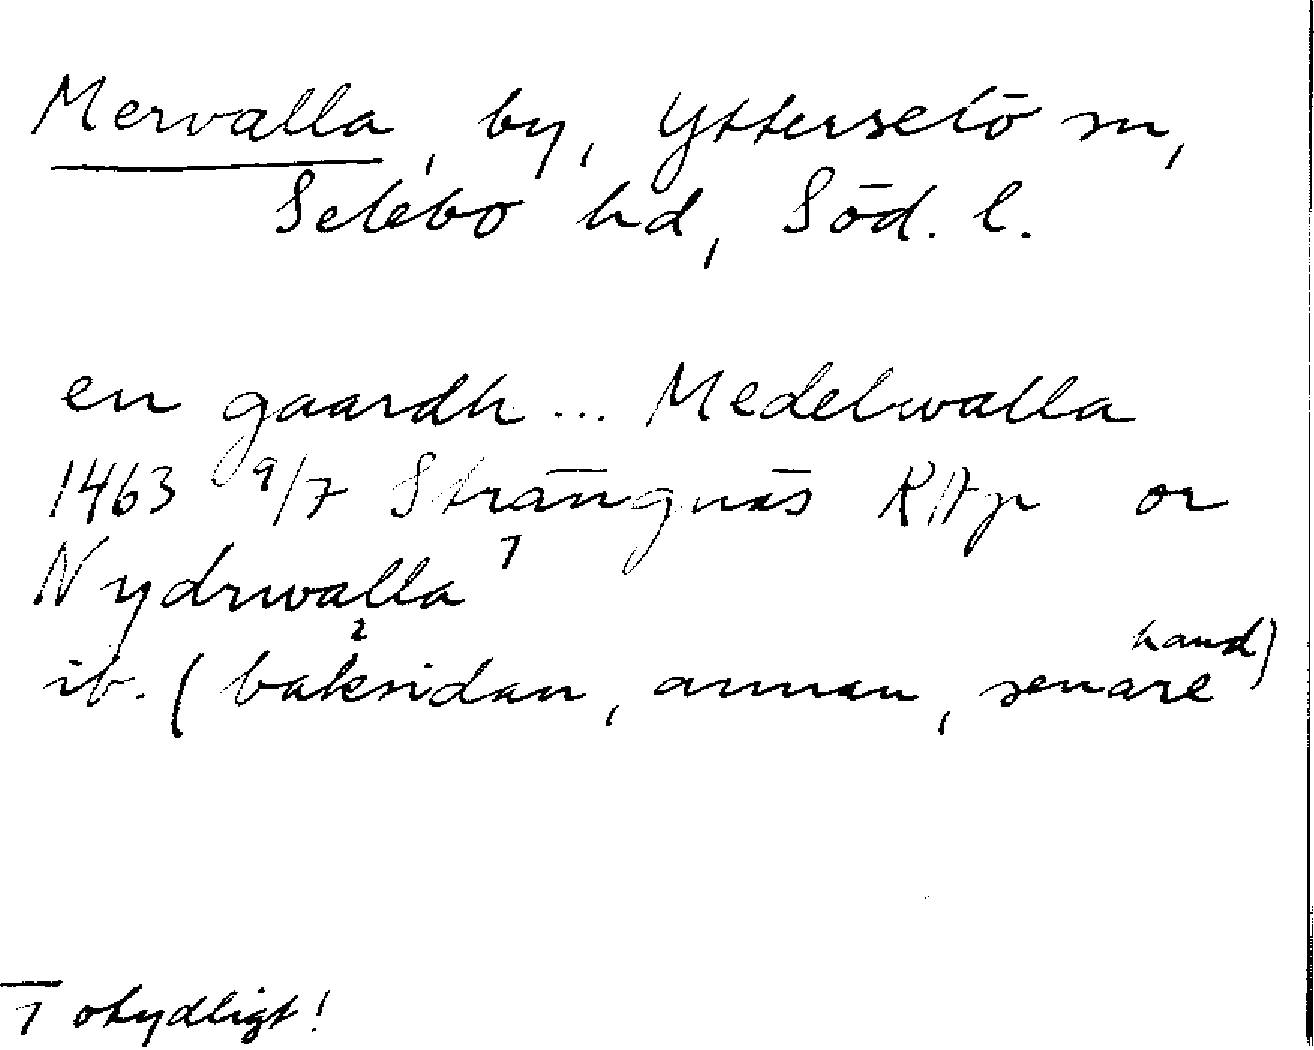 Mervalla, by, Ytterselö sn,
Selebo hd, Söd. l.
en gaardh ... Medelwalla
1463 9/7 Strängnäs RAp or
Nydrwalla 1
2
ib. (baksidan, annan, senare hand)
1 otydligt!